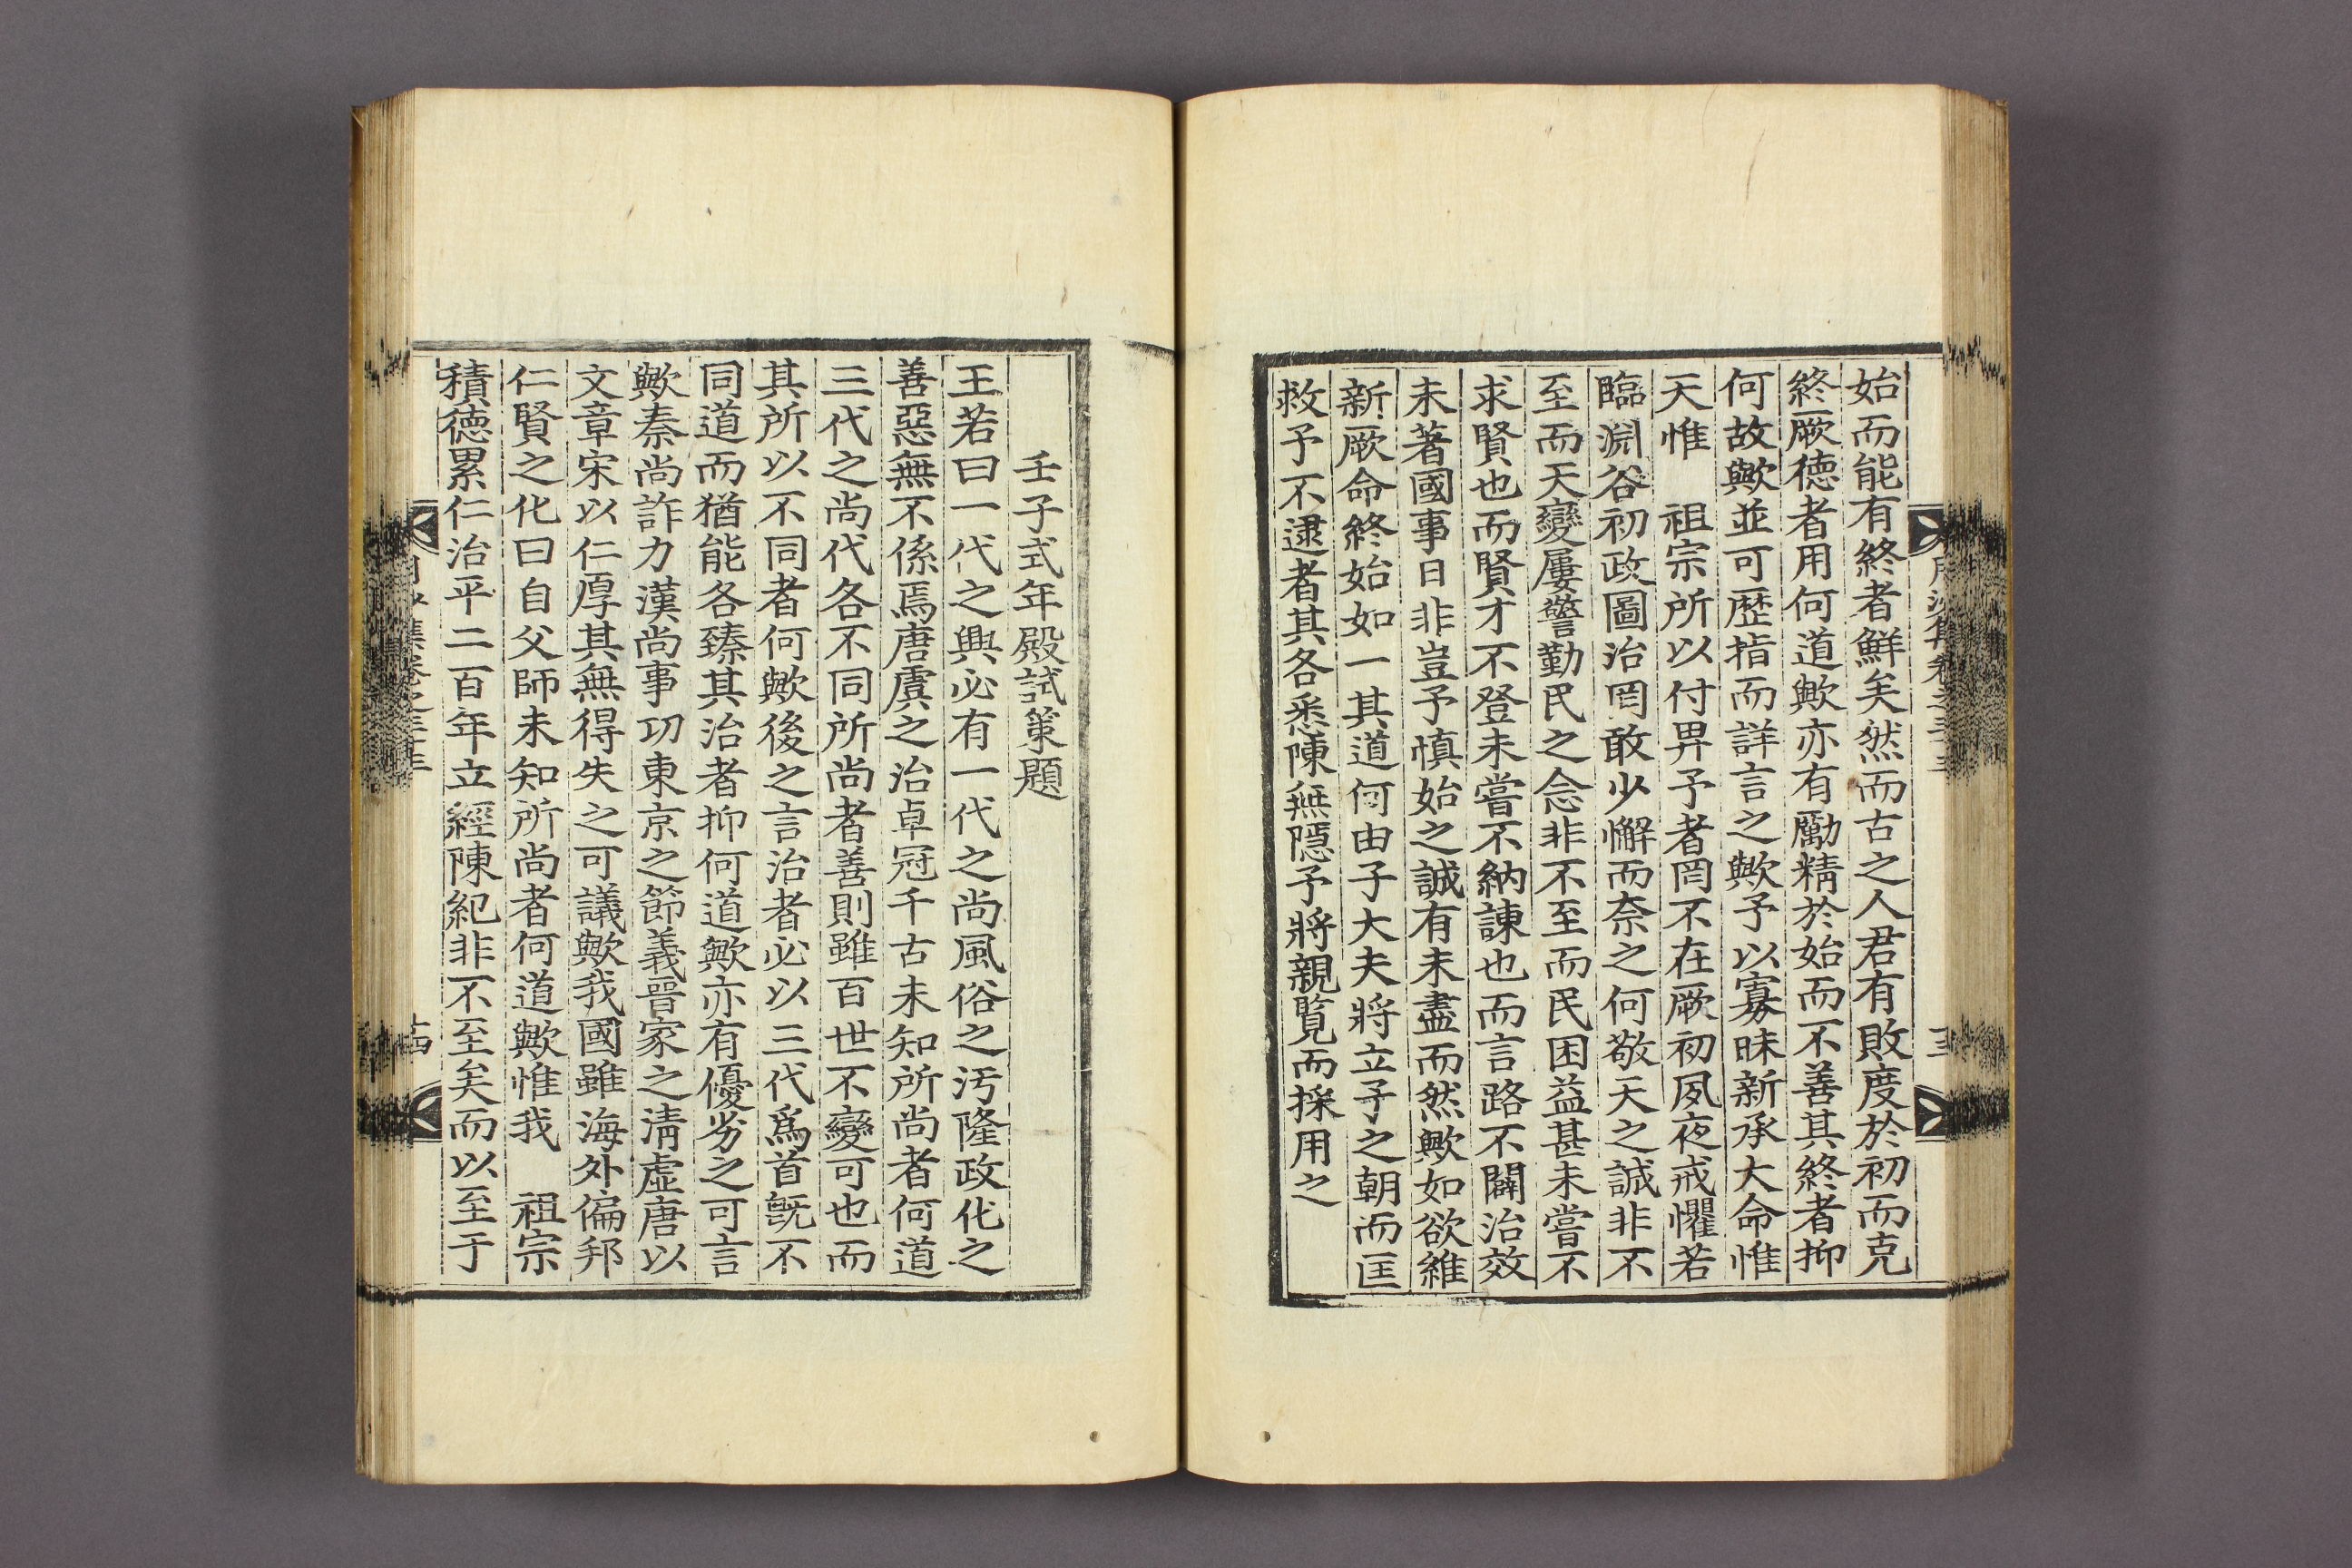 始而能有終者鮮矣然而古之人君有敗度於初而克
終厥德者用何道歟亦有勵精於始而不善其終者抑
何故歟並可歷指而詳言之歟予以寡昧新承大命惟
天惟 祖宗所以付畀予者罔不在厥初夙夜戒懼若
臨淵谷初政圖治罔敢少懈而奈之何敬天之誠非不
至而天變屢警勤民之念非不至而民困益甚未嘗不
求賢也而賢才不登未嘗不納諫也而言路不闢治效
未著國事日非豈予愼始之誠有未盡而然歟如欲維
新厥命終始如一其道何由子大夫將立予之朝而匡
救予不逮者其各悉陳無隱予將親覽而採用之
壬子式年殿試策題
王若曰一代之興必有一代之尚風俗之汚隆政化之
善惡無不係焉唐虞之治卓冠千古未知所尚者何道
三代之尚代各不同所尚者善則雖百世不變可也而
其所以不同者何歟後之言治者必以三代爲首旣不
同道而猶能各臻其治者抑何道歟亦有優劣之可言
歟秦尚詐力漢尚事功東京之節義晉家之淸虛唐以
文章宋以仁厚其無得失之可議歟我國雖海外偏邦
仁賢之化曰自父師未知所尚者何道歟惟我 祖宗
積德累仁治平二百年立經陳紀非不至矣而以至于
集卷之三十三
十四